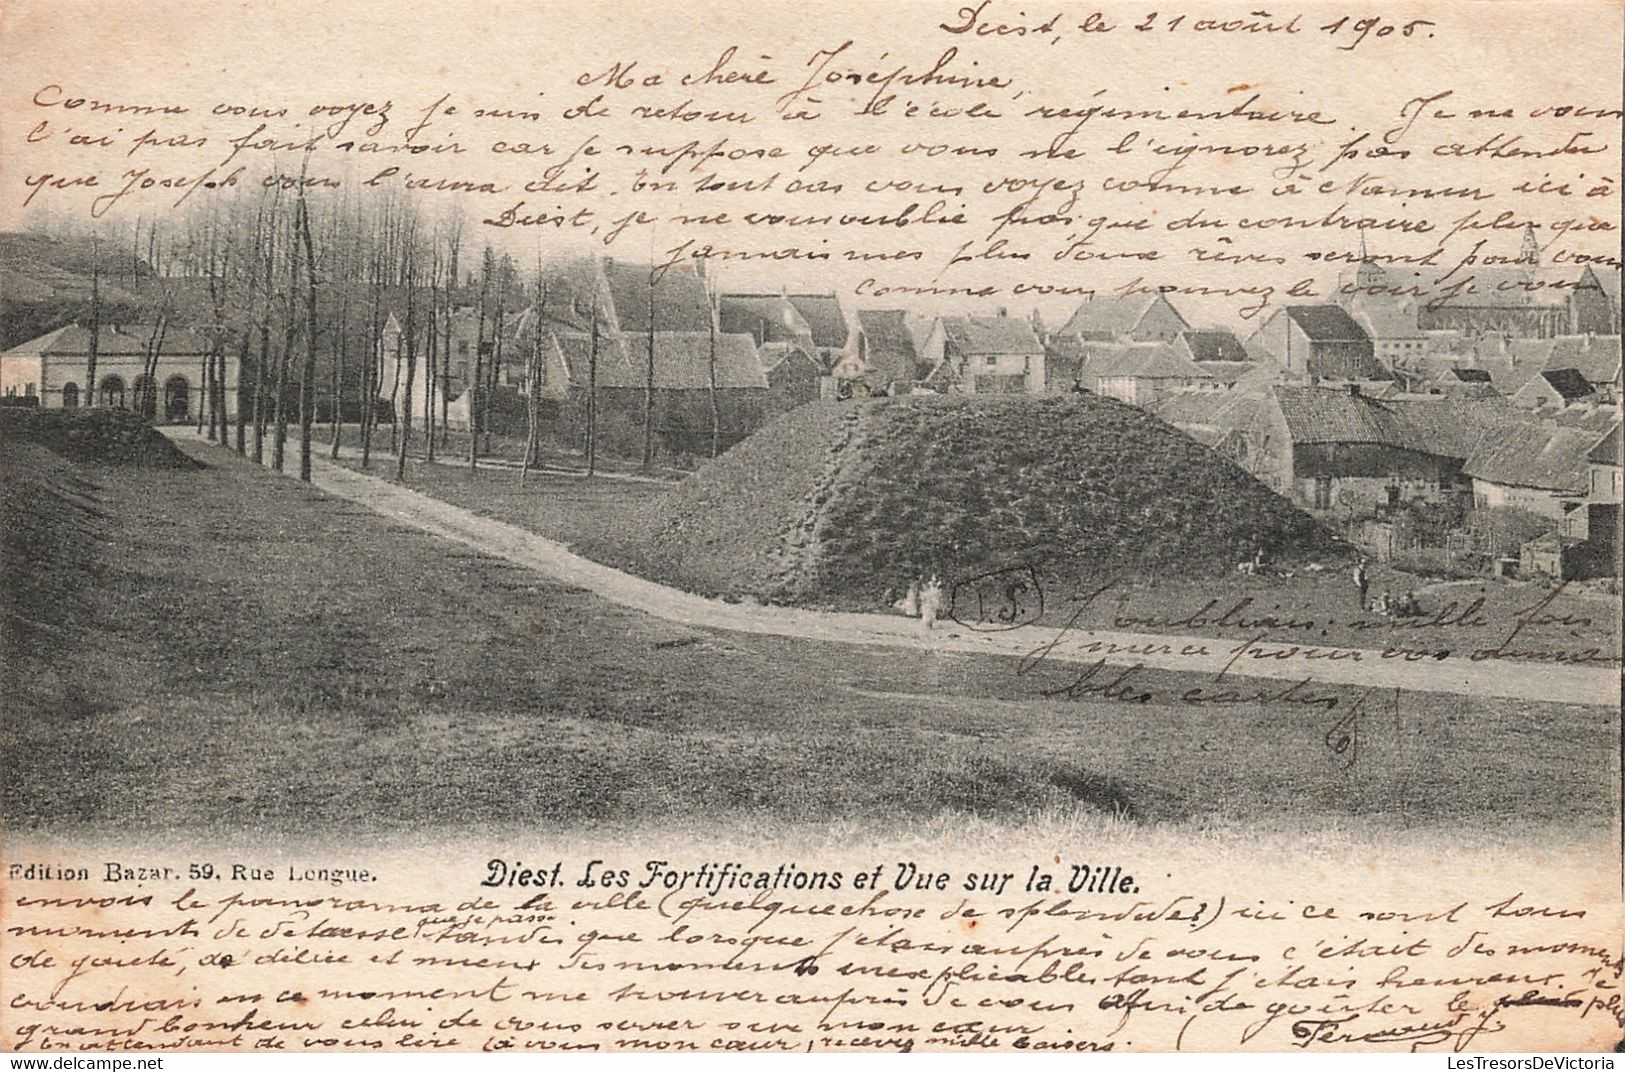 Diest, le 21 août 1905.
Ma chère Joséphine,
Comme vous voyez je suis de retour à l'école régimentaire. Je ne vous
l'ai pas fait savoir car je suppose que vous ne l'ignorez pas attendu
que Joseph vous l'aura dit. En tout cas vous voyez comme à Namur ici à
Diest, je ne vous oublie pas que du contraire plus que
jamais mes plus doux rêves seront pour vous
Comme vous pouvez le voir je vous
J.S.
J'oubliais: mille fois
merci pour vos aima
bles cartes
Edition Bazar. 59, Rue Longue.
Diest. Les Fortifications et Vue sur la Ville.
envois le panorama de la ville (quelque chose de splendide?) ici ce sont tous
moments de détresse que je passe tandis que lorsque j'étais auprès de vous c'était des moments
de gaieté, de délice et mieux des moments inexplicables tant j'étais heureux. Je
voudrais en ce moment me trouver auprès de vous afin de goûter le plus
grand bonheur celui de vous serrer sur mon cœur
En attendant de vous lire (à vous mon cœur, recevez mille baisers.